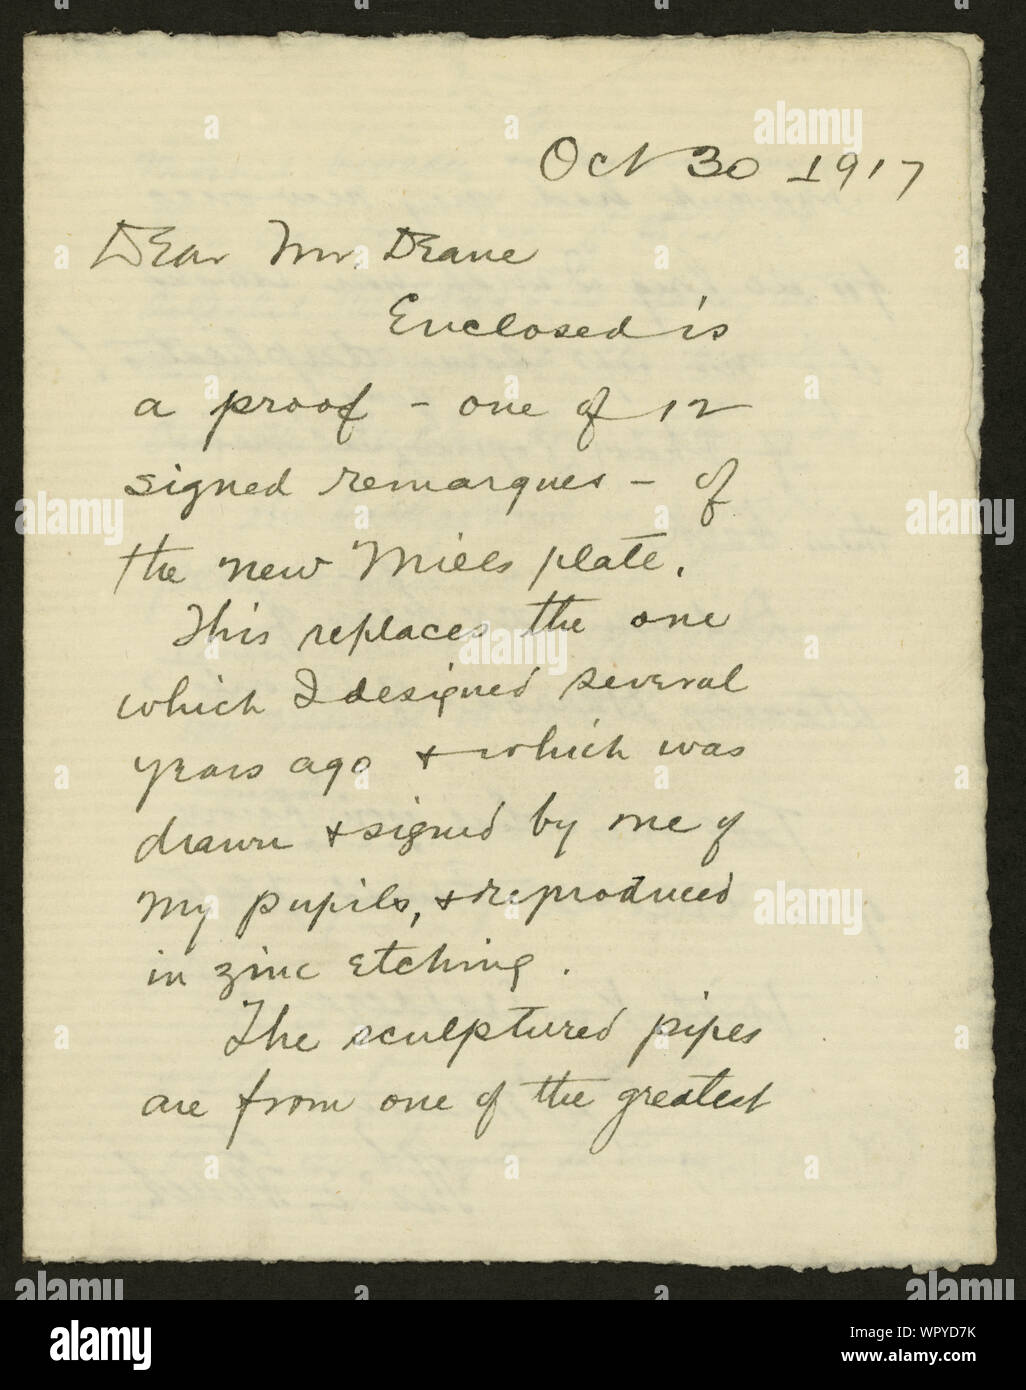 Oct 30 1917
Dear Mr. Deane
Enclosed is
a proof - one of 12
signed remarques - of
the new Mills plate.
This replaces the one
which I designed several
years ago & which was
drawn & signed by one of
my pupils, & reproduced
in zinc etching.
The sculptured pipes
are from one of the greatest
alamy
Image ID: WPYD7K
www.alamy.com